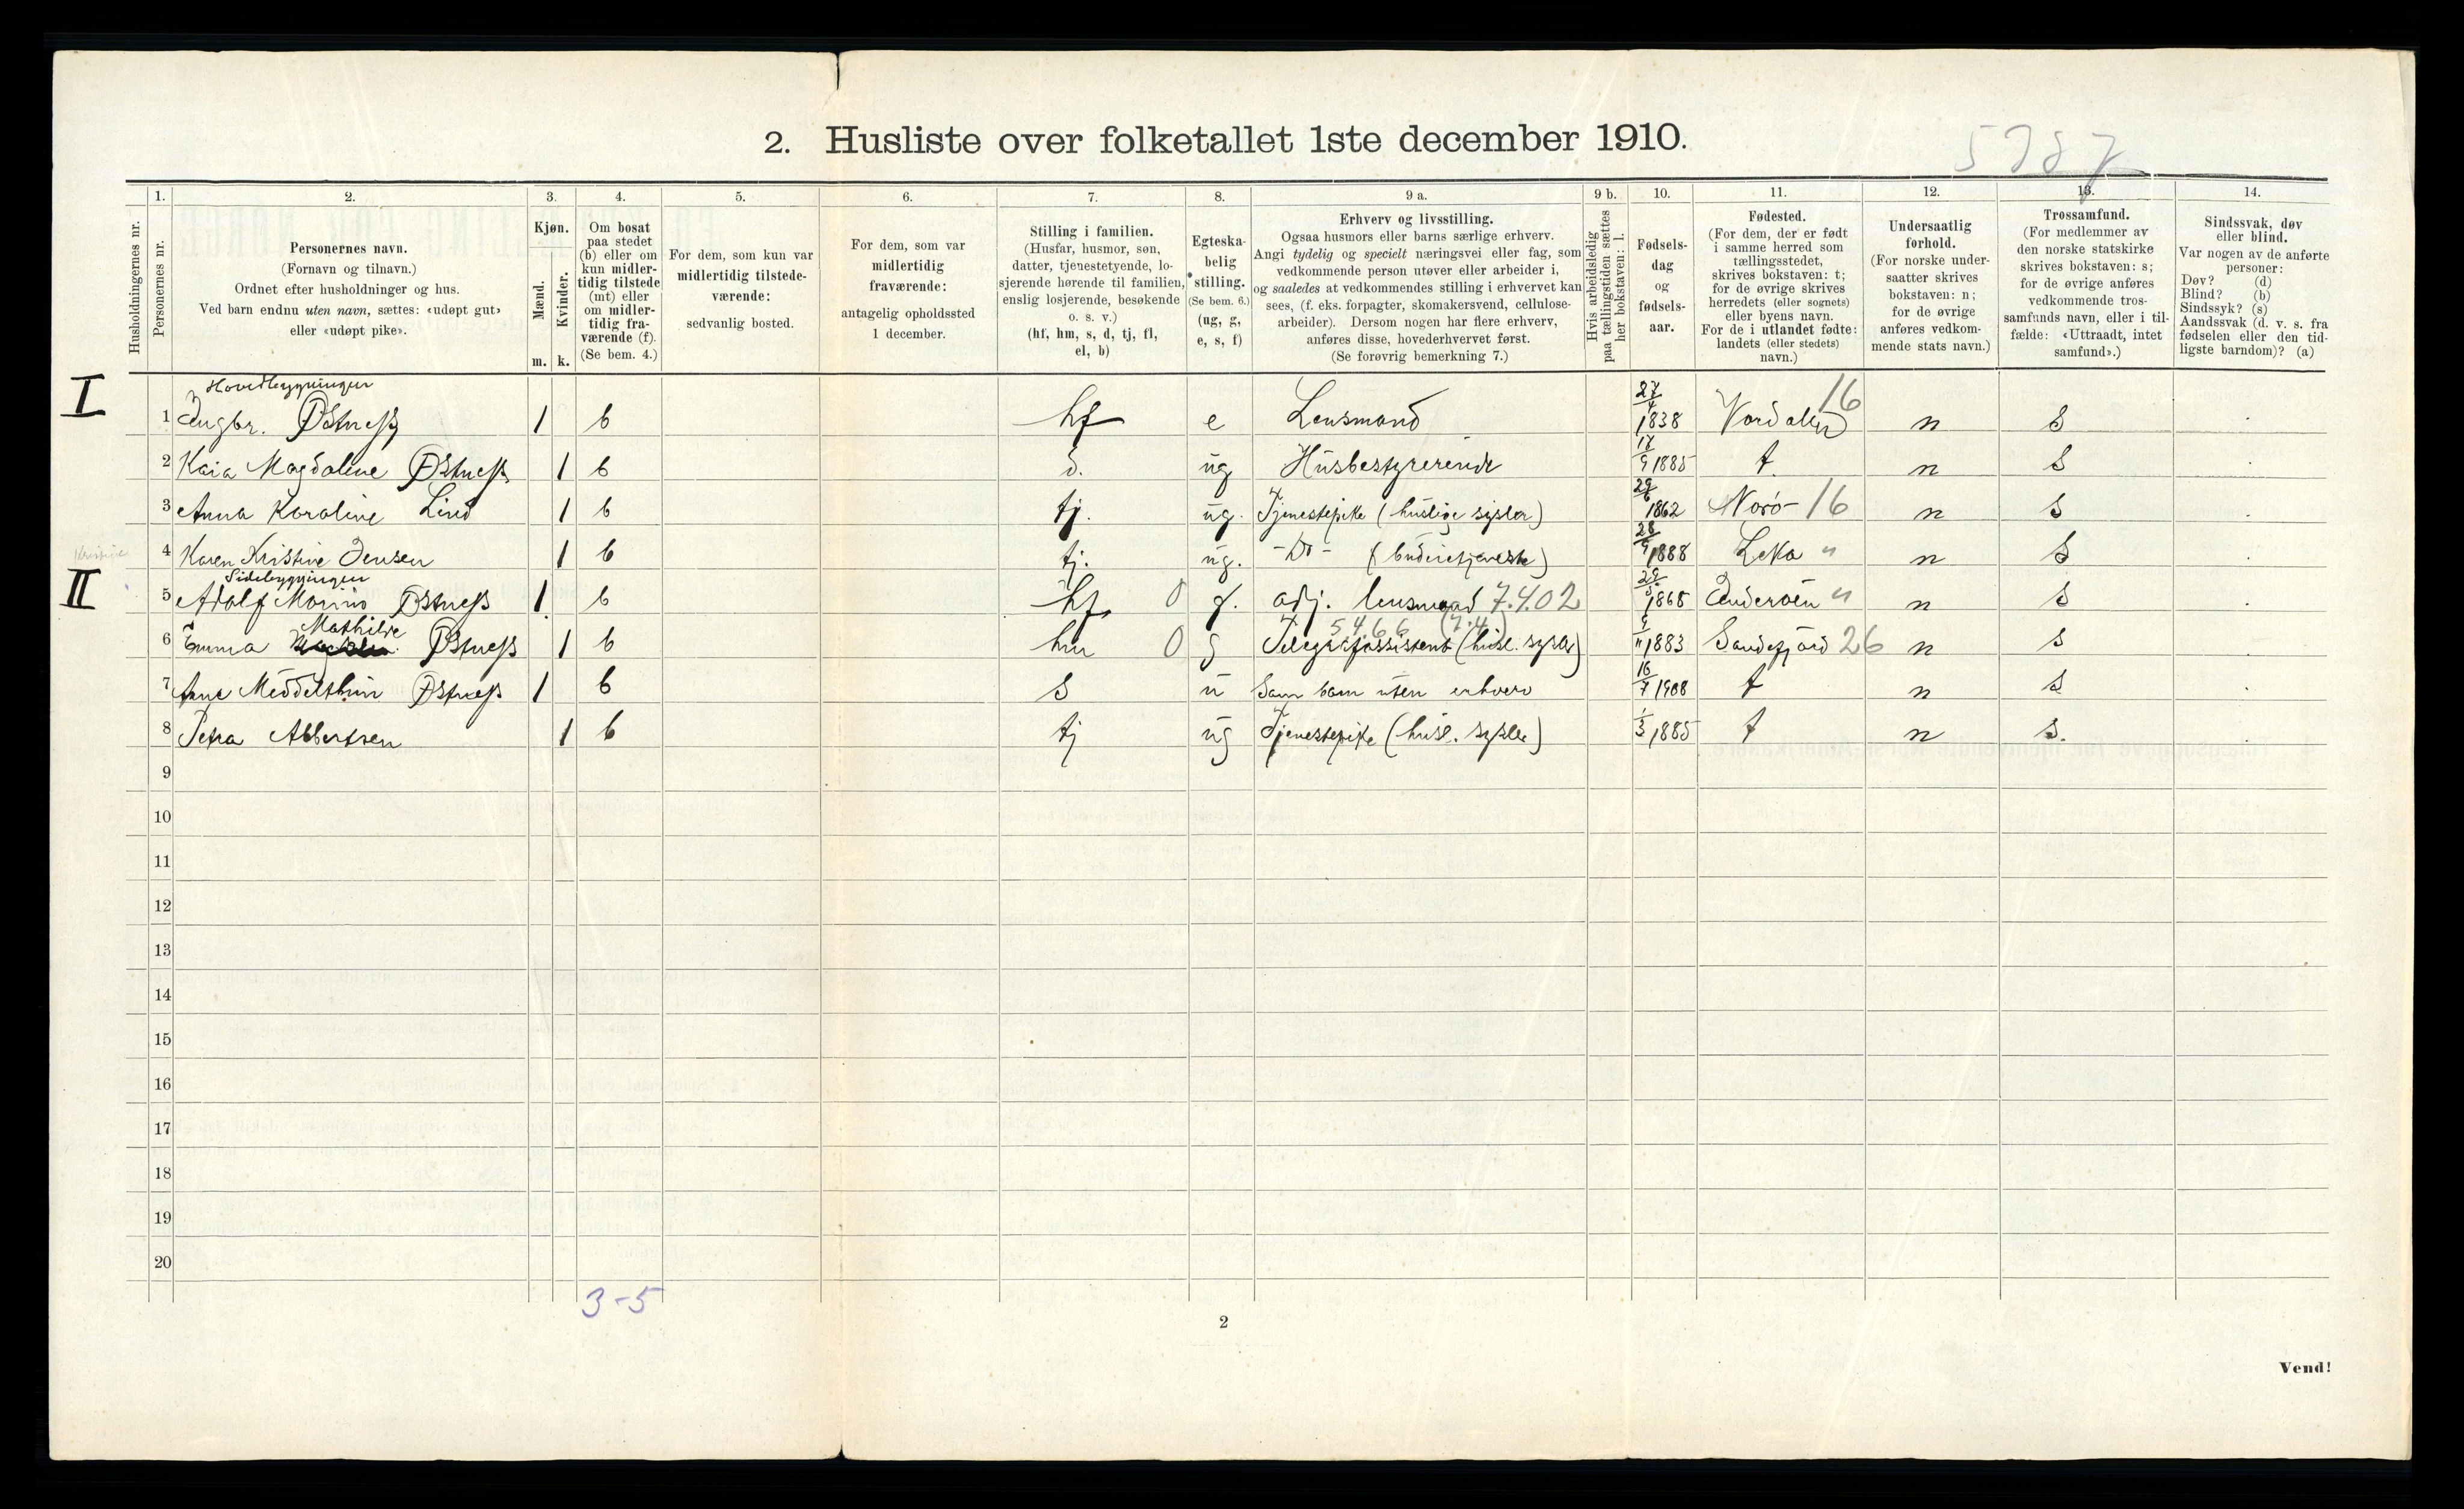 2. Husliste over folketallet 1ste december 1910.
5787
1. 2. 3. 4. 5. 6. 7. 8. 9 a. 9 b. 10. 11. 12. 13. 14.
Husholdningernes nr.
Personernes nr.
Personernes navn.
(Fornavn og tilnavn.)
Ordnet efter husholdninger og hus.
Ved barn endnu uten navn, sættes: «udøpt gut»
eller «udøpt pike».
Kjøn.
Mænd.
Kvinder.
m. k.
Om bosat
paa stedet
(b) eller om
kun midler-
tidig tilstede
(mt) eller
om midler-
tidig fra-
værende (f).
(Se bem. 4.)
For dem, som kun var
midlertidig tilstede-
værende:
sedvanlig bosted.
For dem, som var
midlertidig
fraværende:
antagelig opholdssted
1 december.
Stilling i familien.
(Husfar, husmor, søn,
datter, tjenestetyende, lo-
sjerende hørende til familien,
enslig losjerende, besøkende
o. s. v.)
(hf, hm, s, d, tj, fl,
el, b)
Egteska-
belig
stilling.
(Se bem. 6.)
(ug, g,
e, s, f)
Erhverv og livsstilling.
Ogsaa husmors eller barns særlige erhverv.
Angi tydelig og specielt næringsvei eller fag, som
vedkommende person utøver eller arbeider i,
og saaledes at vedkommendes stilling i erhvervet kan
sees, (f. eks. forpagter, skomakersvend, cellulose-
arbeider). Dersom nogen har flere erhverv,
anføres disse, hovederhvervet først.
(Se forøvrig bemerkning 7.)
Hvis arbeidsledig
paa tællingstiden sættes
her bokstaven: l.
Fødsels-
dag
og
fødsels-
aar.
Fødested.
(For dem, der er født
i samme herred som
tællingsstedet,
skrives bokstaven: t;
for de øvrige skrives
herredets (eller sognets)
eller byens navn.
For de i utlandet fødte:
landets (eller stedets)
navn.)
Undersaatlig
forhold.
(For norske under-
saatter skrives
bokstaven: n;
for de øvrige
anføres vedkom-
mende stats navn.)
Trossamfund.
(For medlemmer av
den norske statskirke
skrives bokstaven: s;
for de øvrige anføres
vedkommende tros-
samfunds navn, eller i til-
fælde: «Uttraadt, intet
samfund».)
Sindssvak, døv
eller blind.
Var nogen av de anførte
personer:
Døv? (d)
Blind? (b)
Sindssyk? (s)
Aandssvak (d. v. s. fra
fødselen eller den tid-
ligste barndom)? (a)
Hovedbygningen
I 1 Ingbr. Østness 1 b hf e Lensmand 27/4 1838 Værdalen 16 n s
2 Kaia Magdaline Østness 1 b d. ug Husbestyrerinde 17/9 1885 t n s
3 Anna Karoline Lind 1 b tj. ug. Tjenestepike (huslige sysler) 29/6 1862 Nærö 16 n s
Kristine
4 Karen Kristine Jensen 1 b tj. ug. -Do- 28/9 1888 Leka " n s
Sidebygningen
II 5 Adolf Marius Østness 1 b hf 0 g. adj. lensmand 7.4.02 1868 Inderöen " n s
Mathilde 5466 (7.4)
6 Emma Østness 1 b hm 0 g Telegrafassistent (husl. sysler) 1883 Sandefjord 26 n s
7 Arne Meddelthun Østness 1 b s u Som barn uten erhverv 16/7 1908 t n s
8 Petra Albertsen 1 b tj ug Tjenestepike (husl. sysler) 1/3 1885 t n s.
9
10
11
12
13
14
15
16
17
18
19
20
3-5
2
Vend!